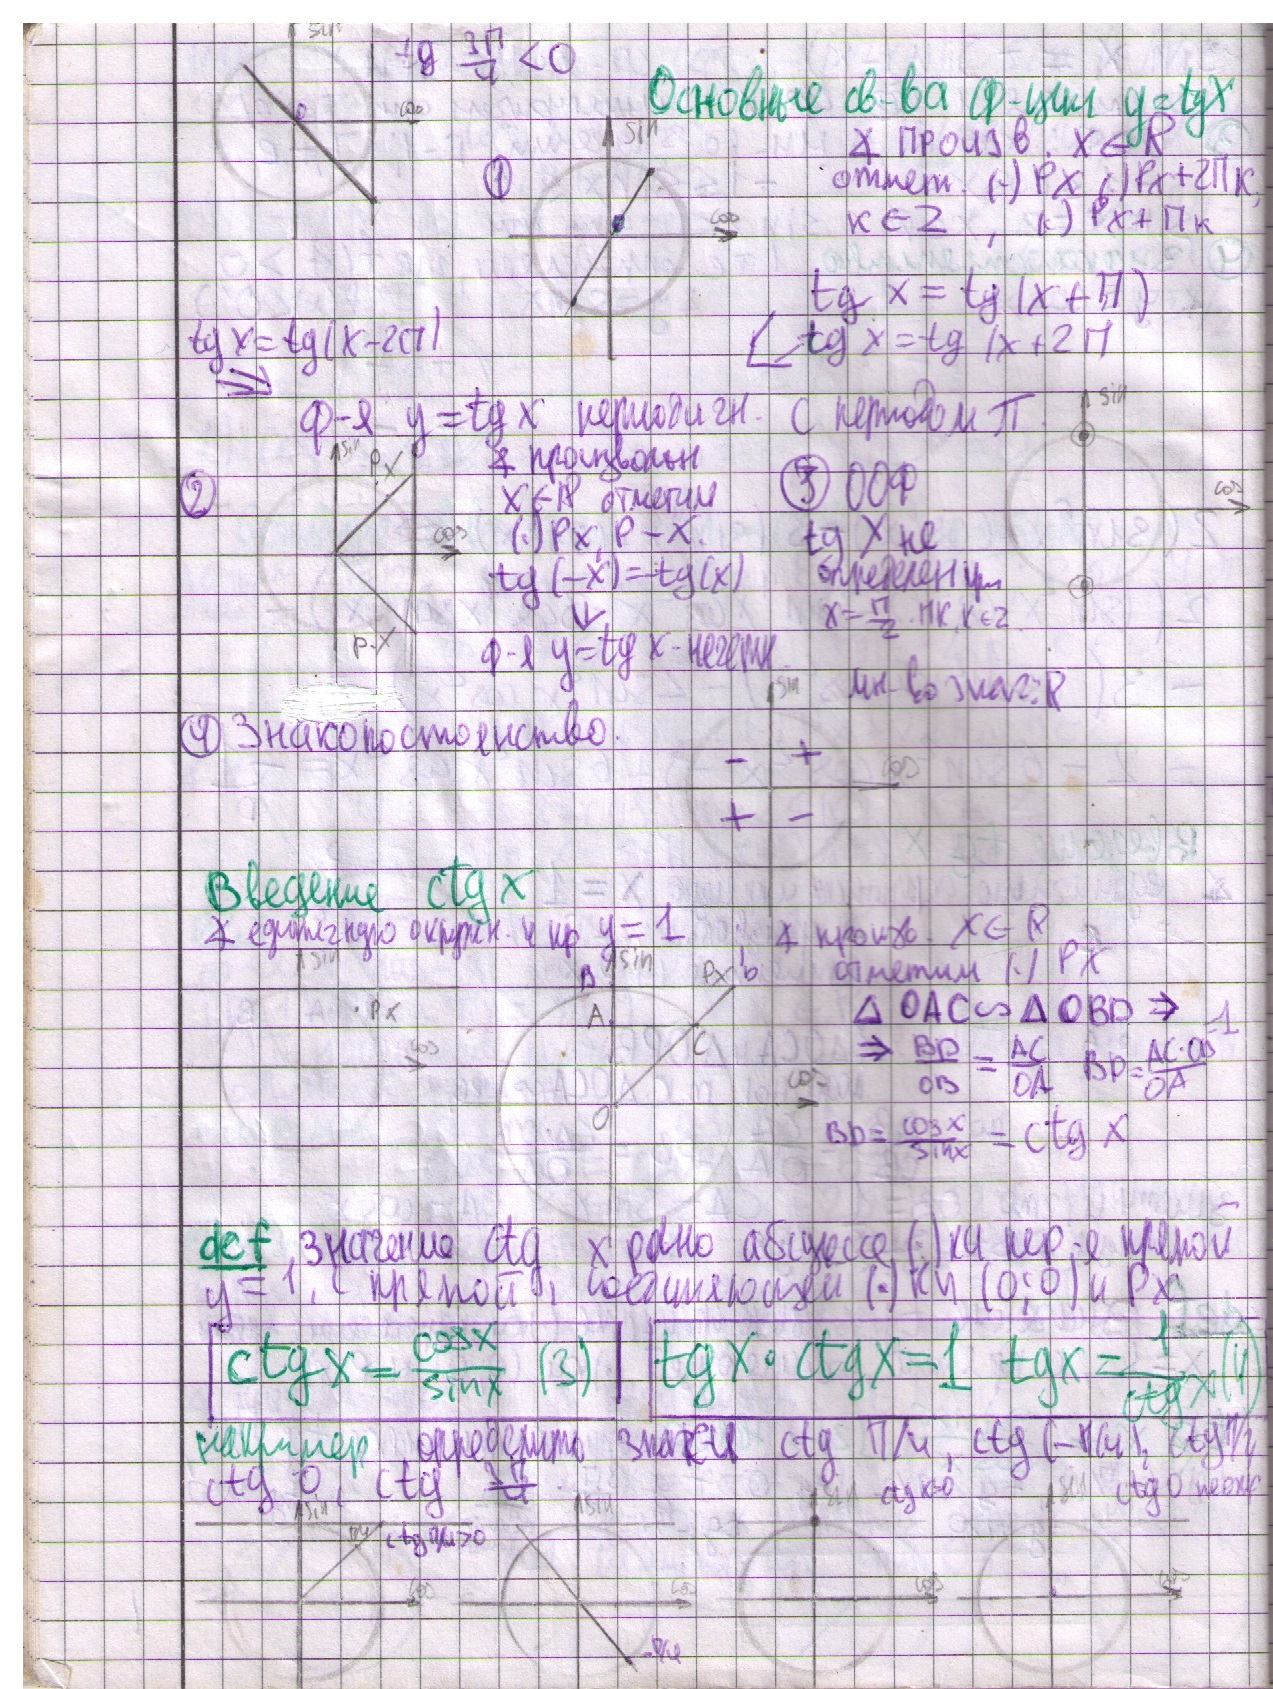 sin
tg 3π/4 < 0
cos
Основные св-ва ф-ции y=tgx
∡ произв. x∈R
① sin
отмет. (·) Px, (·) Px+2πк,
cos
к∈Z, (·) Px+πк
tg x = tg (x+π)
tg x = tg(x-2π)
tg x = tg (x+2π
⇒
ф-я y = tg x периодичн. с периодом π.
sin
② sin Px
∡ произвольн
x∈R отметим
(·) Px, P-x.
cos
tg (-x)=-tg(x)
ф-я y=tg x - нечетн.
P-x
③ ООФ
cos
tg x не
определен при
x = π/2 · πк, к∈Z
мн-во знач: R
④ Знакопостоянство.
sin
- +
cos
+ -
Введение ctg x
∡ единичную окружн. и пр y = 1
∡ произв. x∈R
отметим (·) Px
sin
Px
cos
B sin Px b
A
C
cos
O
△ OAC ∽ △ OBD ⇒
⇒ BD/OB = AC/OA BD = AC·OB/OA
1
BD = cosx/sinx = ctg x
def, значение ctg x равно абсцессе (·)ки пер-я прямой
y = 1, с прямой, соединяющей (·)ки (0;0) и Px
ctg x = cosx/sinx (3)
tgx · ctgx = 1 tgx = 1/ctgx (4)
например определить знак ctg π/4, ctg (-π/4), ctg π/2
ctg 0, ctg 3π/4
sin π/4 ctg π/4 > 0
cos
sin
cos
-π/4
sin
cos
sin
ctg 0
cos